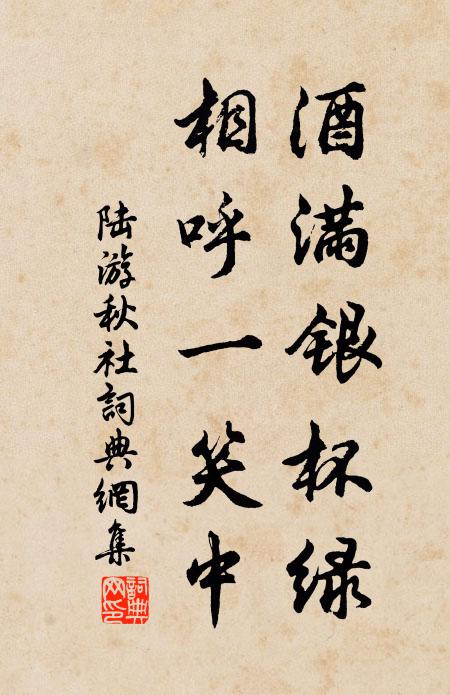 酒满银杯绿
相呼一笑中
陆游秋社詞典網集
詞典网印